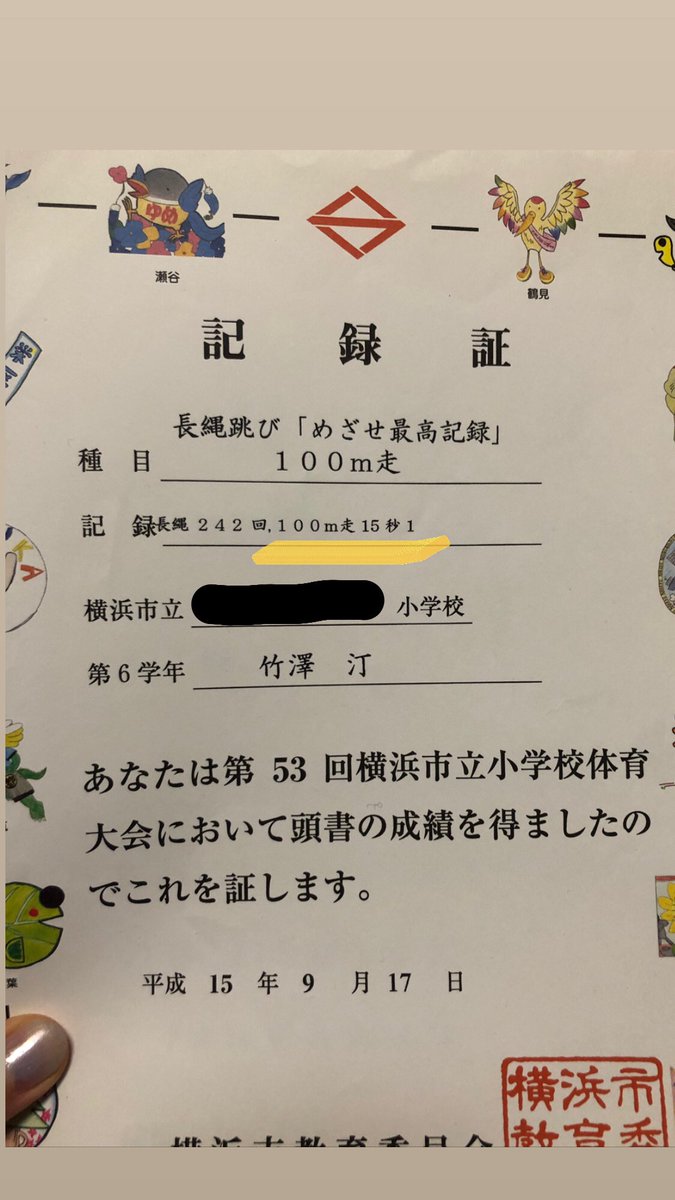 ゆめ
瀬谷
鶴見
記録証
長縄跳び「めざせ最高記録」
種 目 100m走
記 録 長縄 242 回,100m走 15 秒 1
横浜市立 小学校
第6学年 竹澤 汀
あなたは第 53 回横浜市立小学校体育
大会において頭書の成績を得ましたの
でこれを証します。
平成 15 年 9 月 17 日
横浜市教育委員会
横浜市
教育委